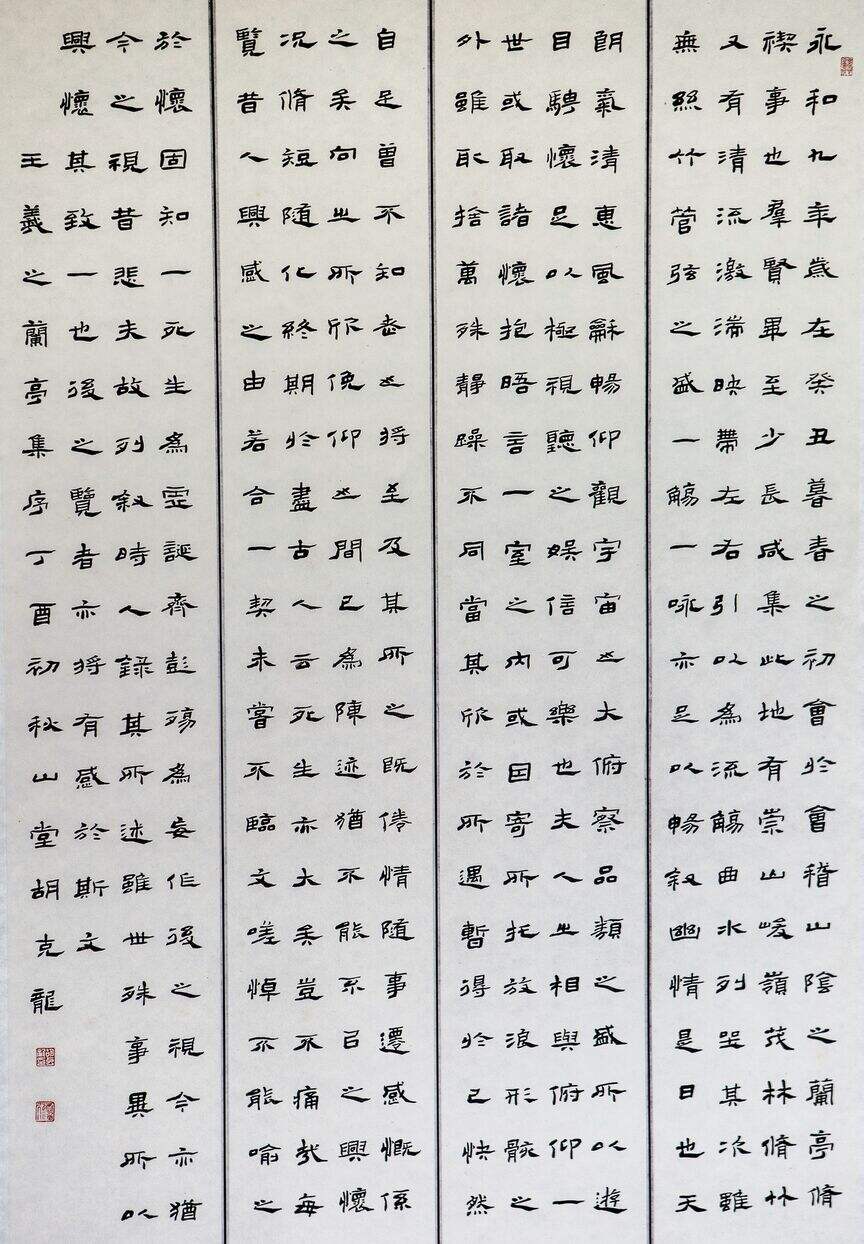 永和九年歲在癸丑暮春之初會於會稽山陰之蘭亭脩
禊事也羣賢畢至少長咸集此地有崇山峻嶺茂林脩竹
又有清流激湍映帶左右引以為流觴曲水列坐其次雖
無絲竹管弦之盛一觴一咏亦足以暢叙幽情是日也天
朗氣清惠風龢暢仰觀宇宙之大俯察品類之盛所以遊
目騁懷足以極視聽之娛信可樂也夫人之相與俯仰一
世或取諸懷抱晤言一室之內或因寄所托放浪形骸之
外雖取捨萬殊靜躁不同當其欣於所遇暫得於己快然
自足曾不知老之將至及其所之既倦情隨事遷感慨係
之矣向之所欣俛仰之間已為陳迹猶不能不以之興懷
況脩短隨化終期於盡古人云死生亦大矣豈不痛哉每
覽昔人興感之由若合一契未嘗不臨文嗟悼不能喻之
於懷固知一死生為虛誕齊彭殤為妄作後之視今亦猶
今之視昔悲夫故列叙時人錄其所述雖世殊事異所以
興懷其致一也後之覽者亦將有感於斯文
王羲之蘭亭集序丁酉初秋山堂胡克龍